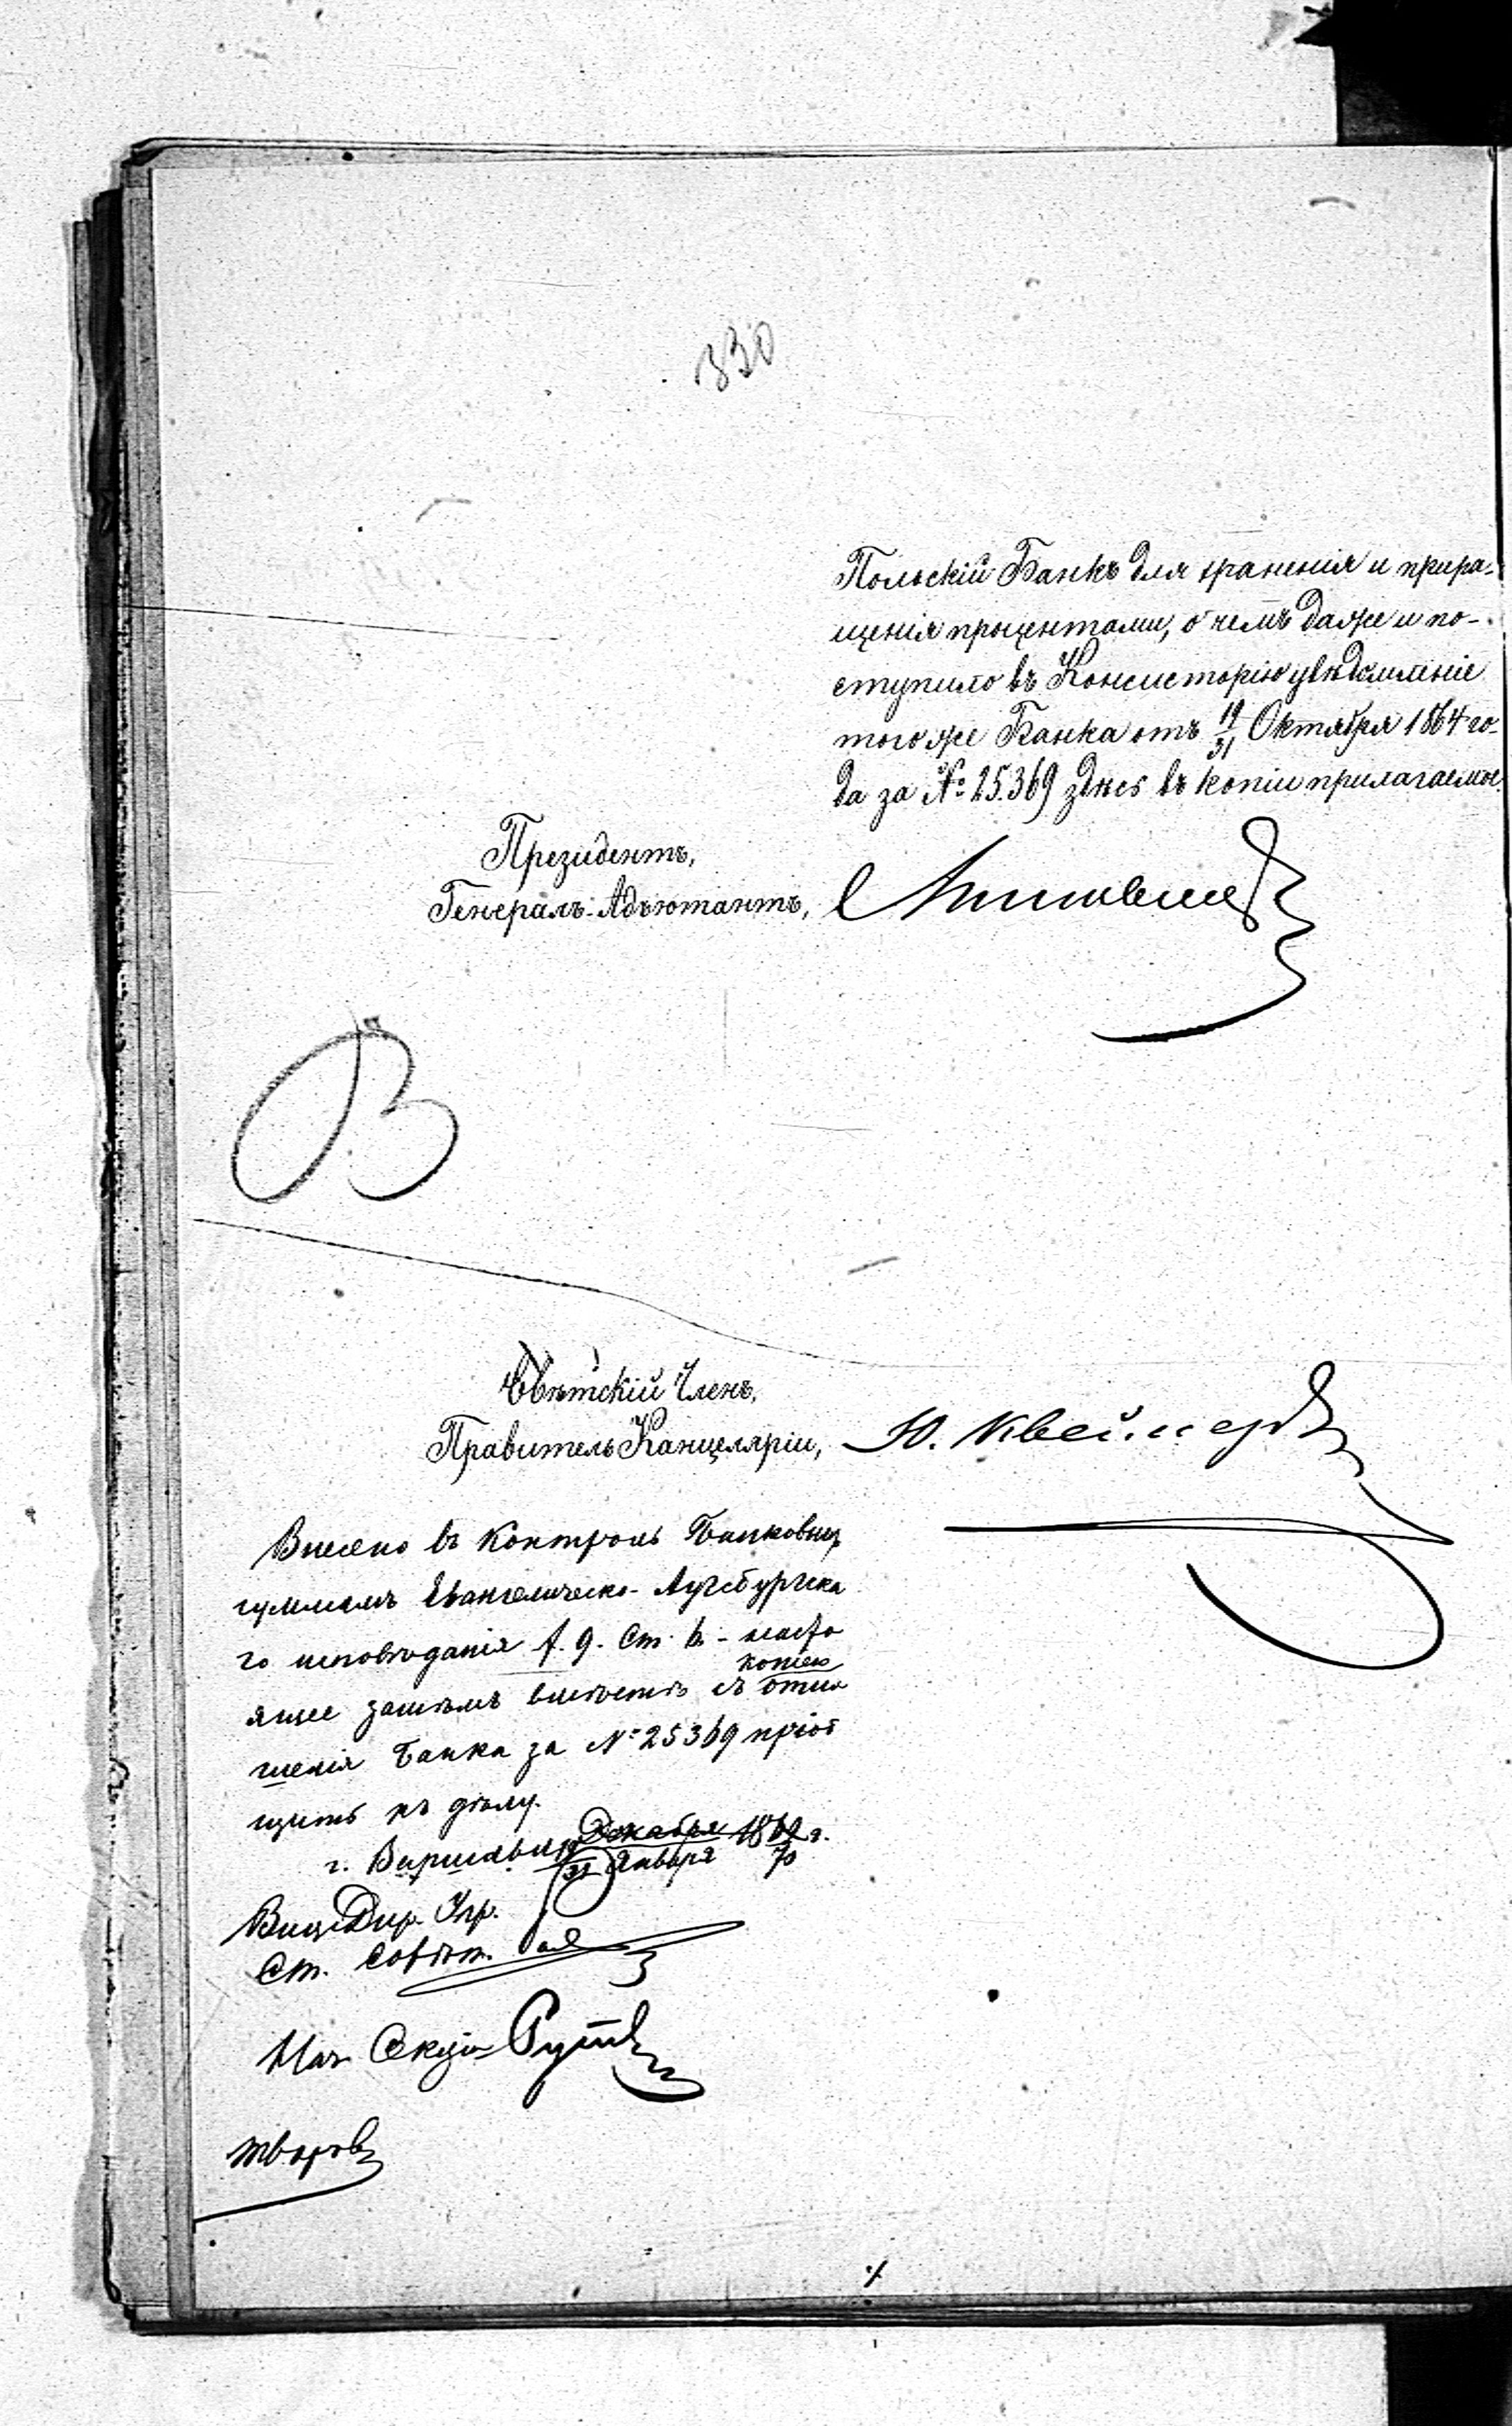 330
Польскій Банкъ для храненія и прира-
щенія процентами, о чемъ даже и по-
ступило въ Консисторію увѣдомленіе
того же Банка отъ 19/31 Октября 1864 го-
да за № 25.369 здѣсь въ копіи прилагаемое.
Президентъ,
Генералъ-Адъютантъ,
Свѣтскій Членъ,
Правитель Канцеляріи,
Внесено въ Контроль Банковыхъ
суммамъ Евангелическо-Аугсбургска
го исповѣданія f. 9. Ст. 6 - насто
ящее затѣмъ вмѣстѣ съ копіею отно
шенія Банка за № 25369 пріоб
щить къ дѣлу.
г. Варшава Декабря 1869 г.
31 Января 70
Вице Дир. Упр.
Ст. Совѣтн.
Нач. Секціи